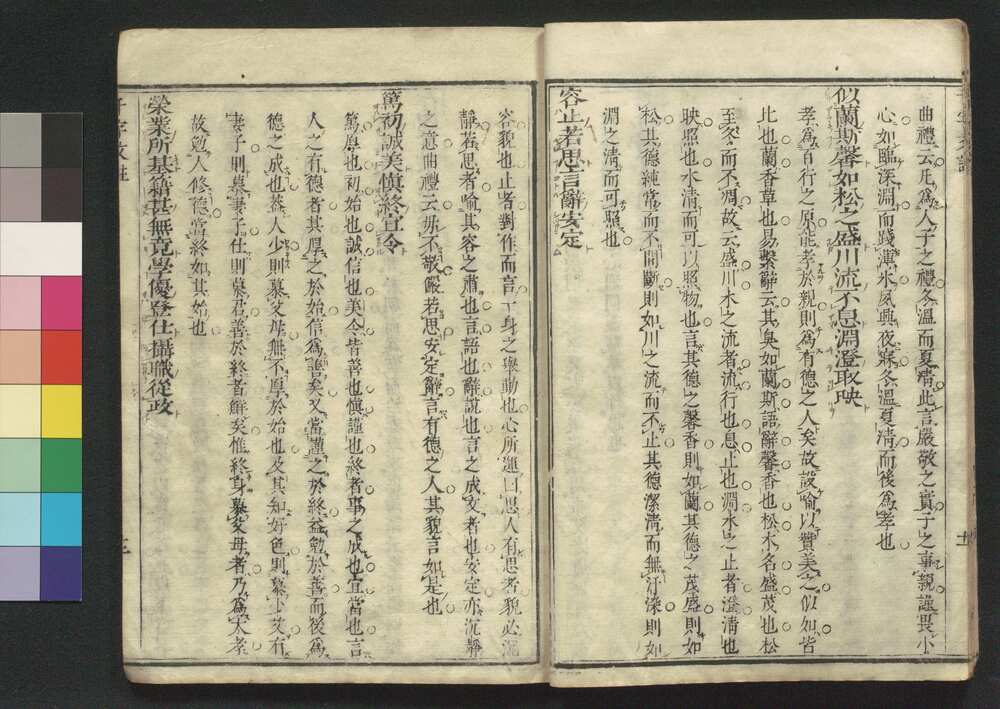 曲禮云凡爲人子之禮冬溫而夏凊此言嚴敬之實子之事親謹畏小
心如臨深淵而踐薄氷夙興夜寐冬溫夏凊而後爲孝也
似蘭斯馨如松之盛川流不息淵澄取映
孝爲百行之原能孝於親則爲有德之人矣故設喻以贊美之似如皆
比也蘭香草也易繫辭云其臭如蘭斯語辭馨香也松木名盛茂也松
至冬而不凋故云盛川木之流者流行也息止也淵水之止者澄淸也
映照也水淸而可以照物也言其德之馨香則如蘭其德之茂盛則如
松其德純常而不間斷則如川之流而不止其德潔淸而無汙染則如
淵之淸而可照也
容止若思言辭安定
容貌也止者對作而言一身之擧動也心所運曰思人有思者貌必沉
靜若思者喻其容之肅也言語也辭說也言之成文者也安定亦沉靜
之意曲禮云毋不敬儼若思安定辭言有德之人其貌言如是也
篤初誠美愼終宜令
篤厚也初始也誠信也美令皆善也愼謹也終者事之成也宜當也言
人之有德者其厚之於始信爲善矣又當謹之於終益勉於善而後爲
德之成也蓋人少則慕父母無不厚於始也及其知好色則慕少艾有
妻子則慕妻子仕則慕君善於終者鮮矣惟終身慕父母者乃爲大孝
故勉人修德當終如其始也
榮業所基籍甚無竟學優登仕攝職從政